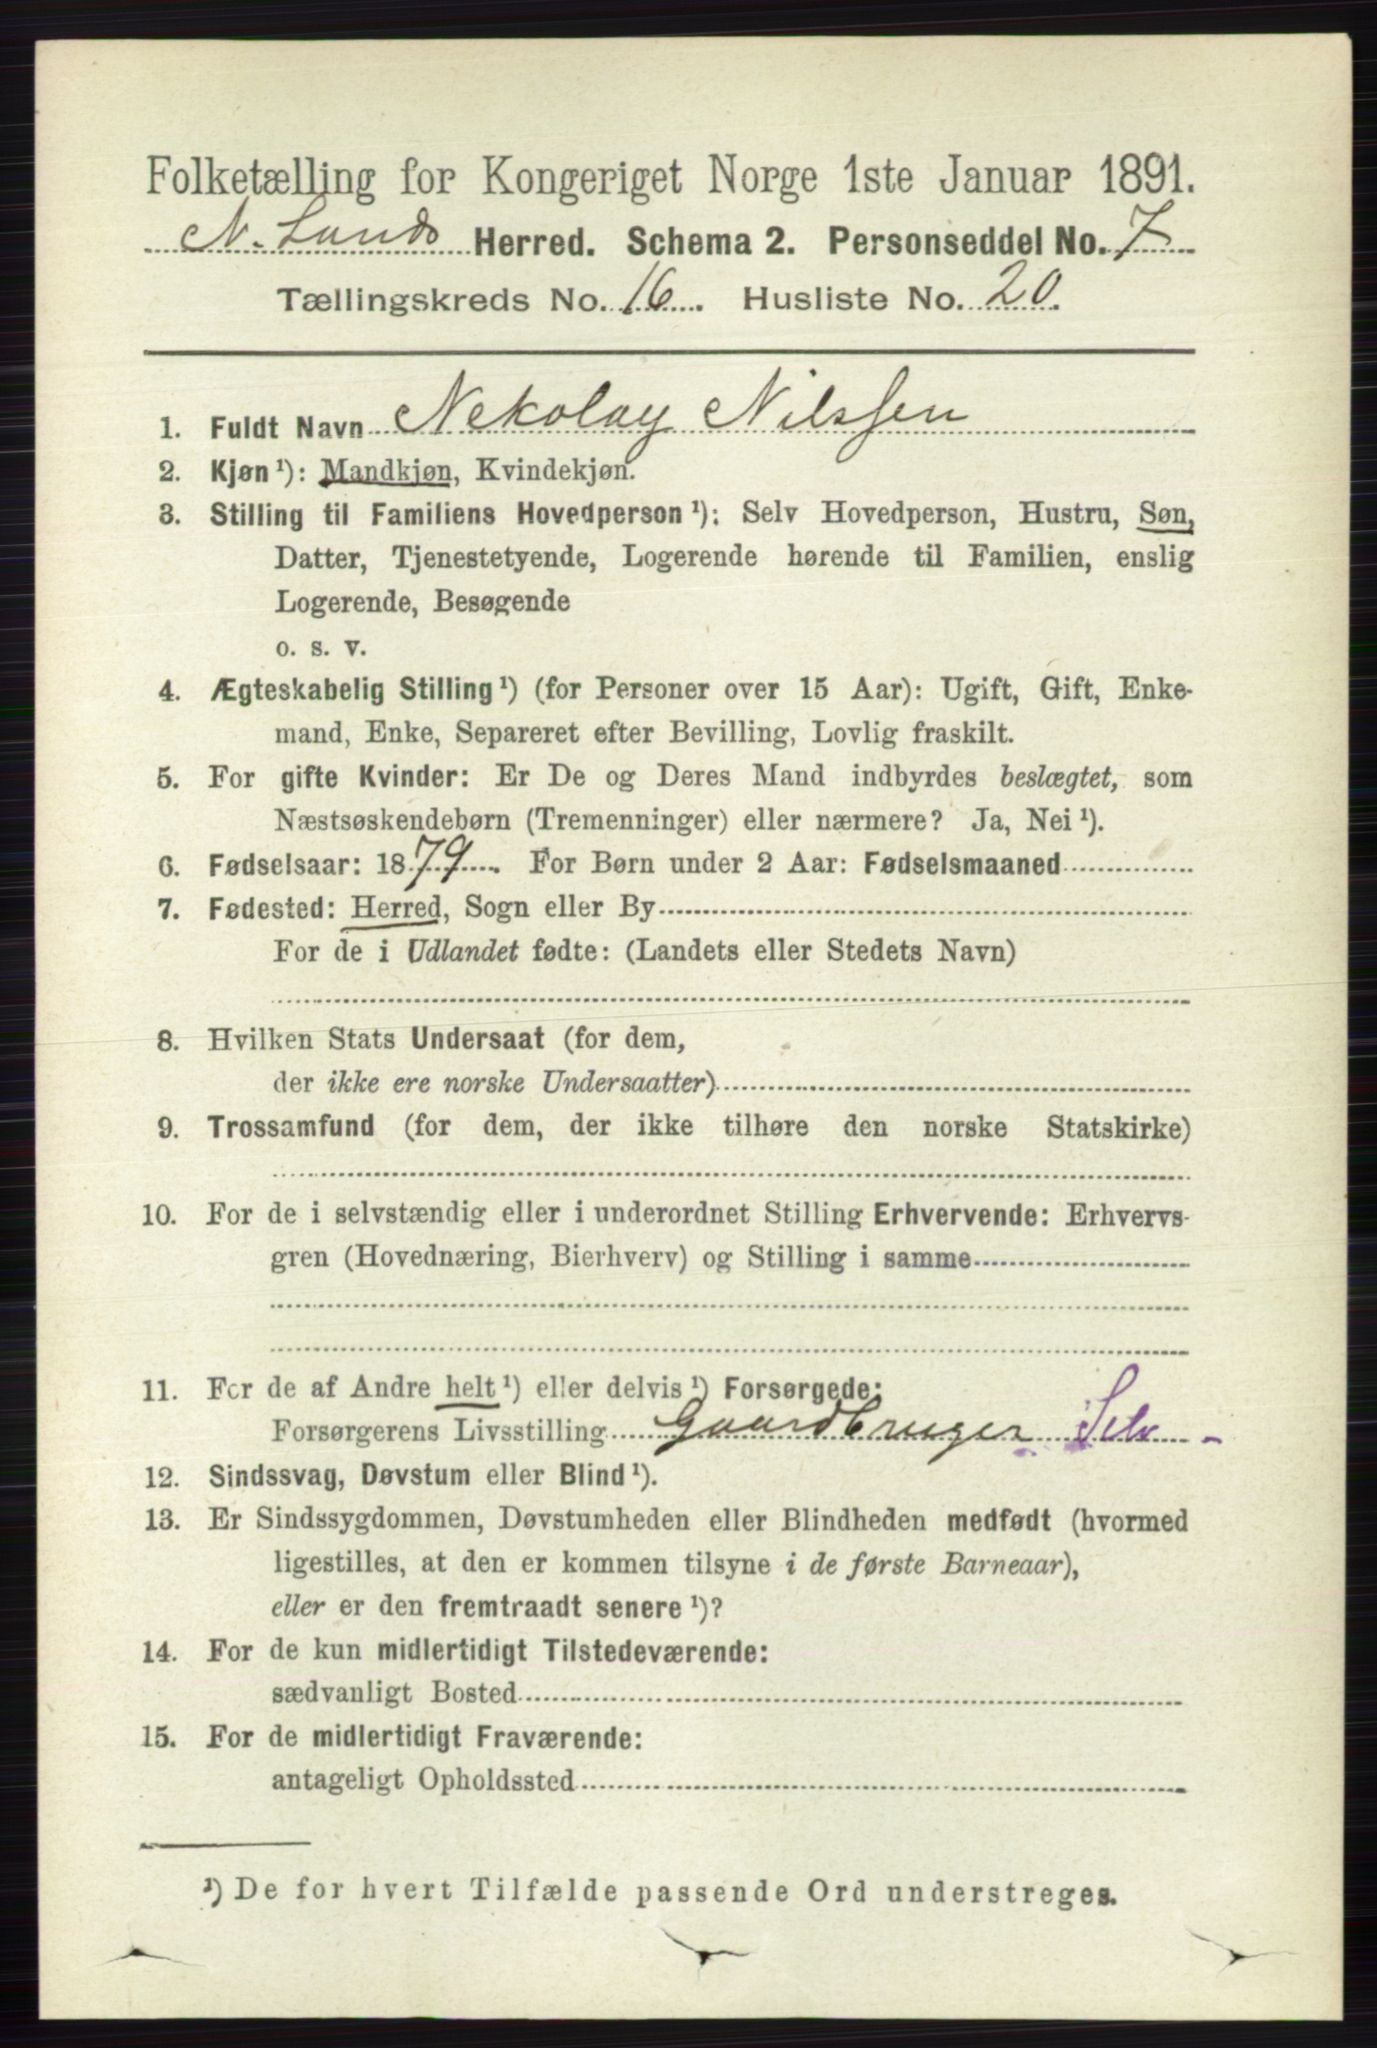 Folketælling for Kongeriget Norge 1ste Januar 1891.
N. Lands Herred. Schema 2. Personseddel No. 7
Tællingskreds No. 16. Husliste No. 20.
1. Fuldt Navn Nekolay Nilssen
2. Kjøn ¹): Mandkjøn, Kvindekjøn.
3. Stilling til Familiens Hovedperson ¹): Selv Hovedperson, Hustru, Søn,
Datter, Tjenestetyende, Logerende hørende til Familien, enslig
Logerende, Besøgende
o. s. v.
4. Ægteskabelig Stilling ¹) (for Personer over 15 Aar): Ugift, Gift, Enke-
mand, Enke, Separeret efter Bevilling, Lovlig fraskilt.
5. For gifte Kvinder: Er De og Deres Mand indbyrdes beslægtet, som
Næstsøskendebørn (Tremenninger) eller nærmere? Ja, Nei ¹).
6. Fødselsaar: 1879. For Børn under 2 Aar: Fødselsmaaned
7. Fødested: Herred, Sogn eller By
For de i Udlandet fødte: (Landets eller Stedets Navn)
8. Hvilken Stats Undersaat (for dem,
der ikke ere norske Undersaatter)
9. Trossamfund (for dem, der ikke tilhøre den norske Statskirke)
10. For de i selvstændig eller i underordnet Stilling Erhvervende: Erhvervs-
gren (Hovednæring, Bierhverv) og Stilling i samme
11. For de af Andre helt ¹) eller delvis ¹) Forsørgede:
Forsørgerens Livsstilling Gaardbruger Selv
12. Sindssvag, Døvstum eller Blind ¹).
13. Er Sindssygdommen, Døvstumheden eller Blindheden medfødt (hvormed
ligestilles, at den er kommen tilsyne i de første Barneaar),
eller er den fremtraadt senere ¹)?
14. For de kun midlertidigt Tilstedeværende:
sædvanligt Bosted
15. For de midlertidigt Fraværende:
antageligt Opholdssted
¹) De for hvert Tilfælde passende Ord understreges.